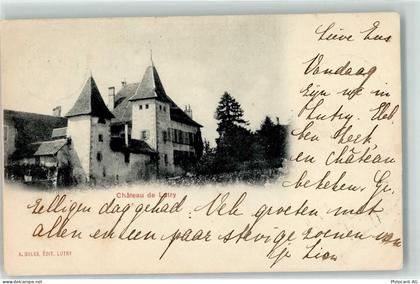 Lieve Eus
Vandaag
zijn we in
Lutry. Heb-
ben kerk
en château
bekeken. Ge-
Château de Lutry
zelligen dag gehad. Vele groeten met
allen en een paar stevige zoenen van
je Lien
A. DELEX, ÉDIT. LUTRY